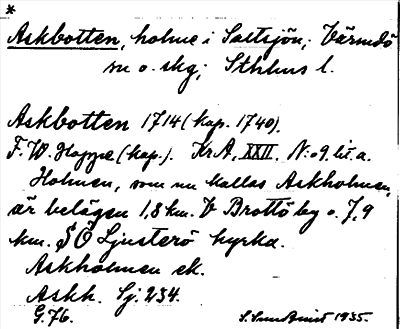 *
Askbotten, holme i Saltsjön; Värmdö
sn o. skg; Sthlms l.
Askbotten 1714 (kap. 1740).
F. W. Hoppe (kap.). KrA, XXII. N:o 9 lit. a.
Holmen, som nu kallas Askholmen,
är belägen 1,8 km. V Brottö by o. 7,9
km. SÖ Ljusterö kyrka.
Askholmen ek.
Askh. Sj: 234.
G. 76. S. Sundquist 1935.